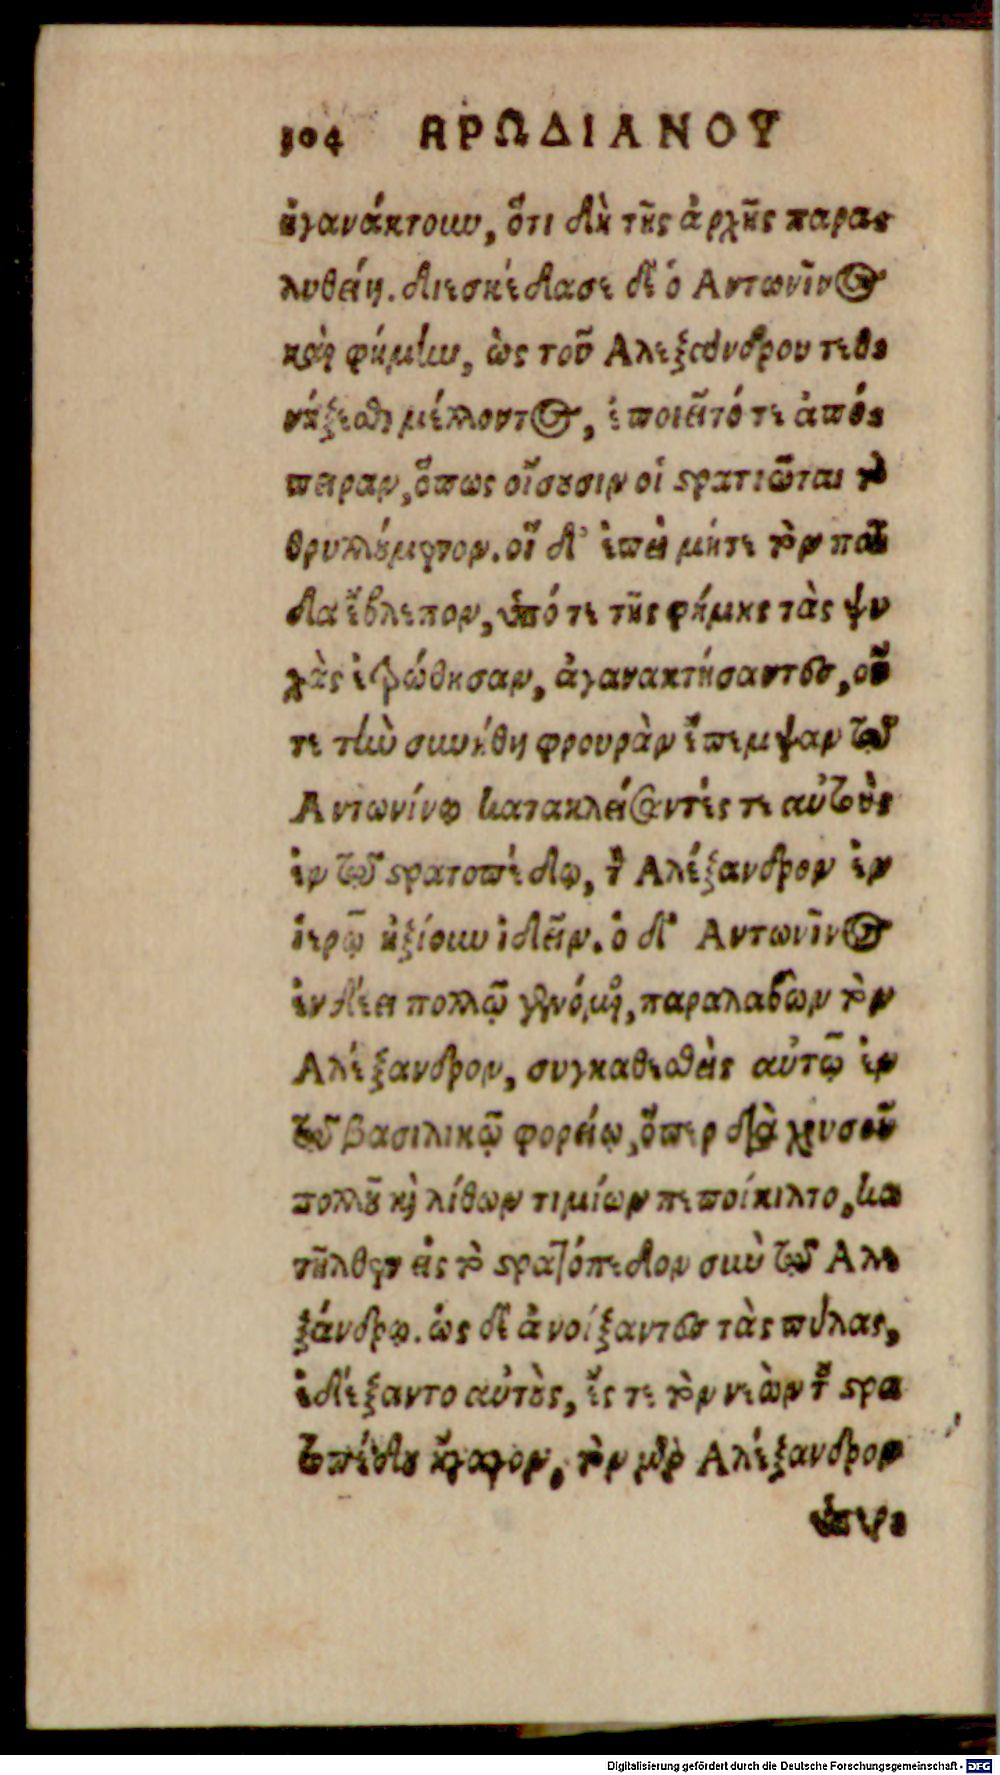 304 ΗΡΩΔΙΑΝΟΥ
ἠγανάκτουν, ὅτι δὴ τῆς ἀρχῆς παρα-
λυθείη. διεσκέδασε δὲ ὁ Αντωνῖνος
καὶ φήμην, ὡς τοῦ Αλεξάνδρου τεθ-
νήξεσθαι μέλλοντος, ἐποιεῖτό τε ἀπό-
πειραν, ὅπως οἴσουσιν οἱ στρατιῶται τὸ
θρυλλούμενον. οἳ δ' ἐπεὶ μήτε τὸν παῖ
δα ἔβλεπον, ὑπό τε τῆς φήμης τὰς ψυ
χὰς ἐτρώθησαν, ἀγανακτήσαντες, οὔ
τε τὴν συνήθη φρουρὰν ἔπεμψαν τῷ
Αντωνίνῳ κατακλείσαντές τε αὑτοὺς
ἐν τῷ στρατοπέδῳ, τὸν Αλέξανδρον ἐν
ἱερῷ ἠξίουν ἰδεῖν. ὁ δὲ Αντωνῖνος
ἐν δέει πολλῷ γενόμενος, παραλαβὼν τὸν
Αλέξανδρον, συγκαθεσθεὶς αὐτῷ ἐν
τῷ βασιλικῷ φορείῳ, ὅπερ διὰ χρυσοῦ
πολλοῦ καὶ λίθων τιμίων πεποίκιλτο, κα
τῆλθεν εἰς τὸ στρατόπεδον σὺν τῷ Αλε
ξάνδρῳ. ὡς δὲ ἀνοίξαντες τὰς πύλας,
ἐδέξαντο αὐτοὺς, ἔς τε τὸν νεὼν τοῦ στρα
τοπέδου ἤγαγον, τὸν μὲν Αλέξανδρον
ὑπερ-
Digitalisierung gefördert durch die Deutsche Forschungsgemeinschaft - DFG